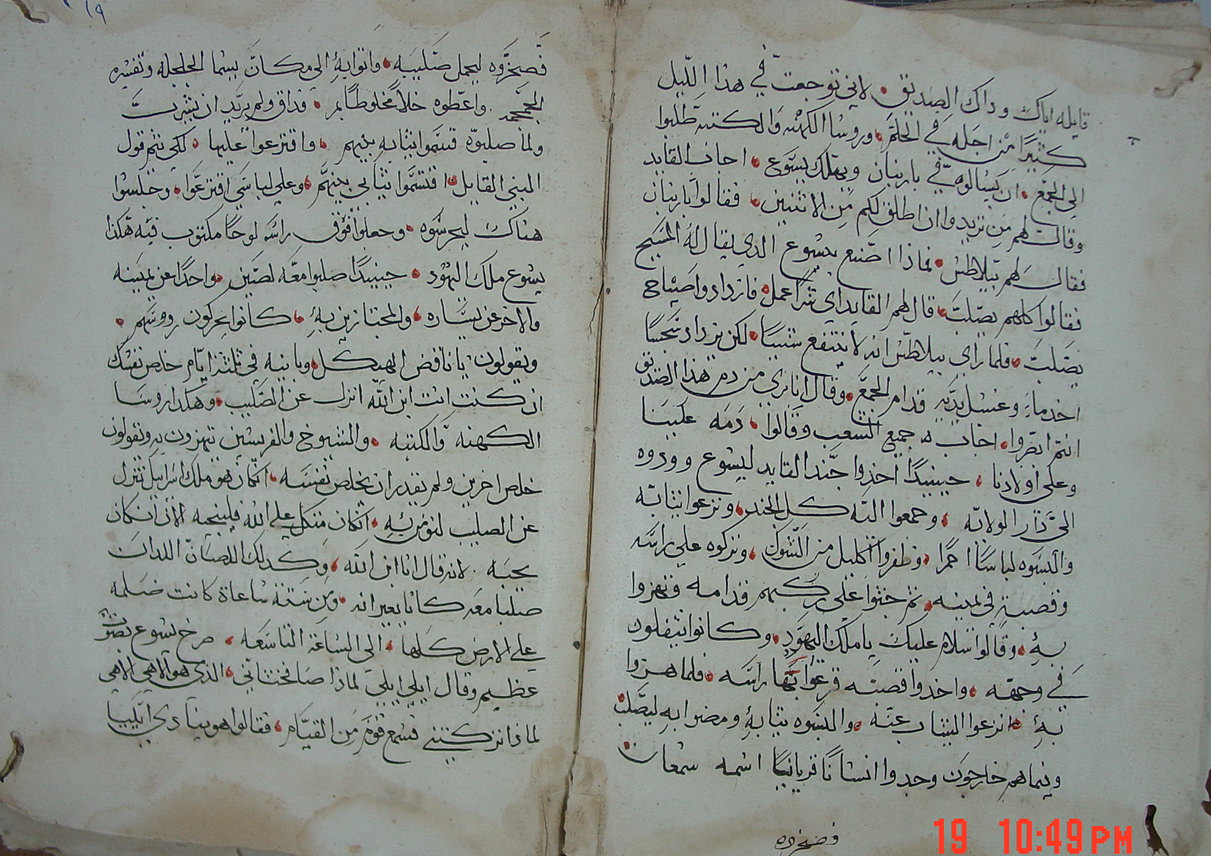 قايله اياك وداك الصديق • لاني توجعت في هذا الليل
كثيرًا من اجله في الحلم • وروسا الكهنه والكتبه طلبوا
الي الجمع • ان يسالوه في باربان ويهلك يسوع • اجاب القايد
وقال لهم من تريدوا ان اطلق لكم من الاثنين • فقالوا باربان
فقال لهم بيلاطس • فماذا اصنع بيسوع الدي يقال له المسيح
فقالوا كلهم يصلب • قال لهم القايد اي شرًا عمل • فازدادوا صياح
يصلب • فلما راى بيلاطس انه لا ينتفع شييًا • لكن يزداد سجسًا
اخد ماء وغسل يديه قدام الجمع • وقال اني بري من دم هذا الصديق
انتم ابصروا • اجاب به جميع الشعب وقالوا • دمه علينا
وعلى اولادنا • حينيدًا اخدوا جند القايد ليسوع وودوه
الي دار الولاته • وجمعوا اليه كل الجند • ونزعوا ثيابه
والبسوه لباسًا احمرًا • وظفروا اكليل من الشوك • وتركوه على راسه
وقصبة في يمينه • ثم جثوا على ركبهم قدامه وتهزوا
به • وقالوا سلام عليك يا ملك اليهود • وكانوا يتفلون
في وجهه • واخدوا قصبه قرعوا بها راسه • فلما هزوا
به • انزعوا الثياب عنه • والبسوه ثيابه ومضوا به ليصلب
وبنما هم خارجون وجدوا انسانًا قريانيًا اسمه سمعان
فصخروه
فصخروه ليحمل صليبه • واتوا به الي مكان يسما الجلجله وتفسيره
الجمجمه واعطوه خلًا مخلوطًا بمر • فداق ولم يريد ان يشرب
ولما صلبوه قسموا ثيابه بينهم • واقترعوا عليها • لكي يتم قول
النبي القايل • اقتسموا ثيابي بينهم • وعلي لباسي اقترعوا • وجلسوا
هناك ليحرسوه • وجعلوا فوق راسه لوحًا مكتوب فيه هكذا
يسوع ملك اليهود • حينيدًا صلبوا معه لصين • واحدًا عن يمينه
والاخر عن يساره • والمجتازين به • كانوا يحركون رووسهم •
ويقولون يا ناقض الهيكل • وبانيه في ثلثة ايام خلص نفسك
ان كنت انت ابن الله انزل عن الصليب • وهكدا روسا
الكهنه والكتبه • والشيوخ والفريسين يتهزون به ويقولون
خلص اخرين ولم يقدر ان يخلص نفسه • ان كان هو ملك اسراييل ينزل
عن الصليب لنومن به • ان كان متكل على الله فلينجيه الان ان كان
يحبه • لانه قال انا ابن الله • وكدلك اللصان اللدان
صلبا معه كانا يعيرانه • ومن ستة ساعاة كانت ضلمه
على الارض كلها • الى الساعة التاسعه • صرخ يسوع بصوت
عظيم وقال ايلي ايلي لماذا صافختاني • الدي هو الاهي الاهي
لماذا تركتني فسمع قوم من القيام • فقالوا هو ينادي ايليا
19 10:49 PM